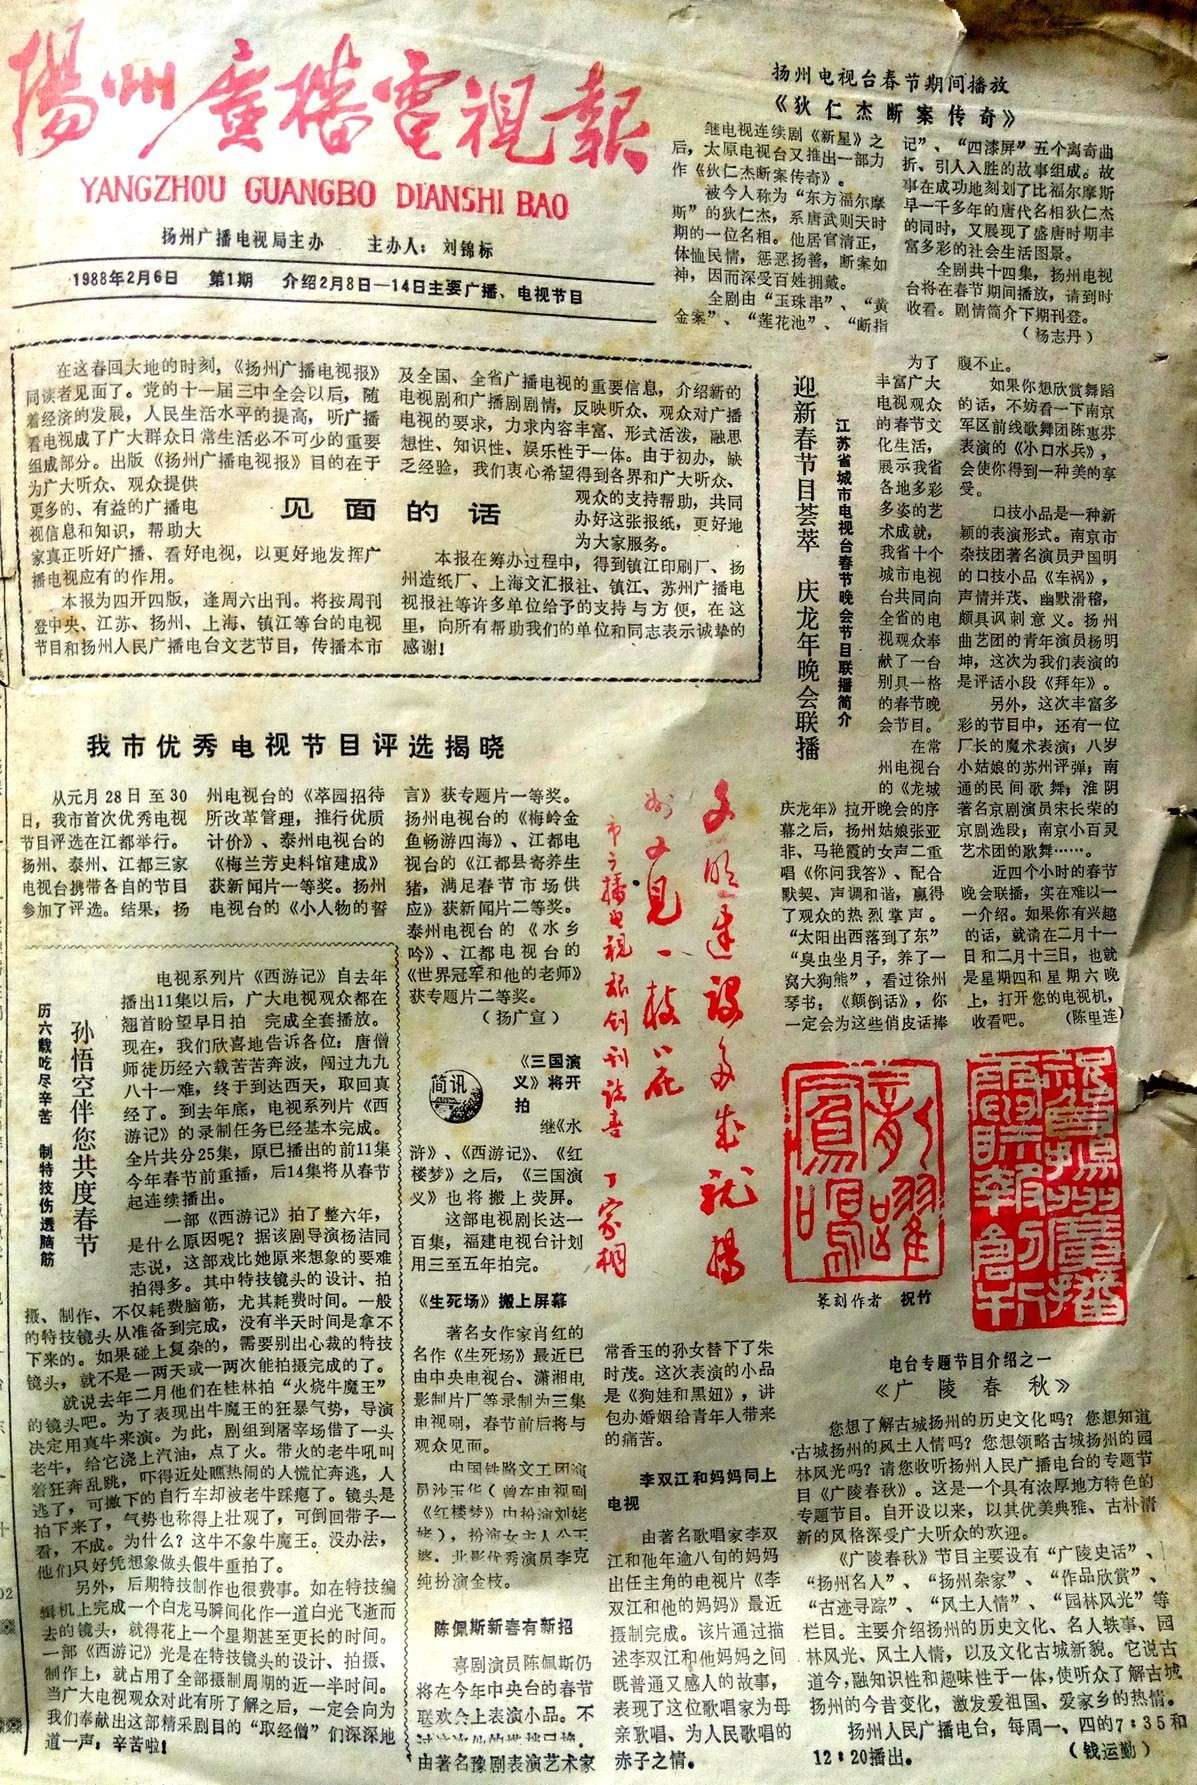 揚州廣播電視報
YANGZHOU GUANGBO DIANSHI BAO
扬州广播电视局主办 主办人：刘锦标
1988年2月6日 第1期 介绍2月8日—14日主要广播、电视节目
扬州电视台春节期间播放
《狄仁杰断案传奇》
继电视连续剧《新星》之
后，太原电视台又推出一部力
作《狄仁杰断案传奇》。
被今人称为“东方福尔摩
斯”的狄仁杰，系唐武则天时
期的一位名相。他居官清正，
体恤民情，惩恶扬善，断案如
神，因而深受百姓拥戴。
全剧由“玉珠串”、“黄
金案”、“莲花池”、“断指
记”、“四漆屏”五个离奇曲
折、引人入胜的故事组成。故
事在成功地刻划了比福尔摩斯
早一千多年的唐代名相狄仁杰
的同时，又展现了盛唐时期丰
富多彩的社会生活图景。
全剧共十四集，扬州电视
台将在春节期间播放，请到时
收看。剧情简介下期刊登。
（杨志丹）
见面的话
在这春回大地的时刻，《扬州广播电视报》
同读者见面了。党的十一届三中全会以后，随
着经济的发展，人民生活水平的提高，听广播
看电视成了广大群众日常生活必不可少的重要
组成部分。出版《扬州广播电视报》目的在于
为广大听众、观众提供
更多的、有益的广播电
视信息和知识，帮助大
家真正听好广播、看好电视，以更好地发挥广
播电视应有的作用。
本报为四开四版，逢周六出刊。将按周刊
登中央、江苏、扬州、上海、镇江等台的电视
节目和扬州人民广播电台文艺节目，传播本市
及全国、全省广播电视的重要信息，介绍新的
电视剧和广播剧剧情，反映听众、观众对广播
电视的要求，力求内容丰富、形式活泼，融思
想性、知识性、娱乐性于一体。由于初办，缺
乏经验，我们衷心希望得到各界和广大听众、
观众的支持帮助，共同
办好这张报纸，更好地
为大家服务。
本报在筹办过程中，得到镇江印刷厂、扬
州造纸厂、上海文汇报社、镇江、苏州广播电
视报社等许多单位给予的支持与方便，在这
里，向所有帮助我们的单位和同志表示诚挚的
感谢！
迎新春节目荟萃 庆龙年晚会联播
江苏省城市电视台春节晚会节目联播简介
为了
丰富广大
电视观众
的春节文
化生活，
展示我省
各地多彩
多姿的艺
术成就，
我省十个
城市电视
台共同向
全省的电
视观众奉
献了一台
别具一格
的春节晚
会节目。
在常
州电视台
的《龙城
庆龙年》拉开晚会的序
幕之后，扬州姑娘张亚
非、马艳霞的女声二重
唱《你问我答》、配合
默契、声调和谐，赢得
了观众的热烈掌声。
“太阳出西落到了东”
“臭虫坐月子，养了一
窝大狗熊”，看过徐州
琴书：《颠倒话》，你
一定会为这些俏皮话捧
腹不止。
如果你想欣赏舞蹈
的话，不妨看一下南京
军区前线歌舞团陈惠芬
表演的《小口水兵》，
会使你得到一种美的享
受。
口技小品是一种新
颖的表演形式。南京市
杂技团著名演员尹国明
的口技小品《车祸》，
声情并茂、幽默滑稽，
颇具讽刺意义。扬州
曲艺团的青年演员杨明
坤，这次为我们表演的
是评话小段《拜年》。
另外，这次丰富多
彩的节目中，还有一位
厂长的魔术表演；八岁
小姑娘的苏州评弹；南
通的民间歌舞；淮阴
著名京剧演员宋长荣的
京剧选段；南京小百灵
艺术团的歌舞……。
近四个小时的春节
晚会联播，实在难以一
一介绍。如果你有兴趣
的话，就请在二月十一
日和二月十三日，也就
是星期四和星期六晚
上，打开您的电视机，
收看吧。 （陈里连）
我市优秀电视节目评选揭晓
从元月28日至30
日，我市首次优秀电视
节目评选在江都举行。
扬州、泰州、江都三家
电视台携带各自的节目
参加了评选。结果，扬
州电视台的《萃园招待
所改革管理，推行优质
计价》、泰州电视台的
《梅兰芳史料馆建成》
获新闻片一等奖。扬州
电视台的《小人物的誓
言》获专题片一等奖。
扬州电视台的《梅岭金
鱼畅游四海》、江都电
视台的《江都县寄养生
猪，满足春节市场供
应》获新闻片二等奖。
泰州电视台的《水乡
吟》、江都电视台的
《世界冠军和他的老师》
获专题片二等奖。
（扬广宣）
文明建设多成就扬
州又见一枝花
市广播电视报创刊志喜 丁家桐
龍躍鳳鳴
祝賀揚州廣播電視報創刊
篆刻作者 祝竹
历六载吃尽辛苦 制特技伤透脑筋
孙悟空伴您共度春节
电视系列片《西游记》自去年
播出11集以后，广大电视观众都在
翘首盼望早日拍 完成全套播放。
现在，我们欣喜地告诉各位：唐僧
师徒历经六载苦苦奔波，闯过九九
八十一难，终于到达西天，取回真
经了。到去年底，电视系列片《西
游记》的录制任务已经基本完成。
全片共分25集，原已播出的前11集
今年春节前重播，后14集将从春节
起连续播出。
一部《西游记》拍了整六年，
是什么原因呢？据该剧导演杨洁同
志说，这部戏比她原来想象的要难
拍得多。其中特技镜头的设计、拍
摄、制作、不仅耗费脑筋，尤其耗费时间。一般
的特技镜头从准备到完成，没有半天时间是拿不
下来的。如果碰上复杂的，需要别出心裁的特技
镜头，就不是一两天或一两次能拍摄完成的了。
就说去年二月他们在桂林拍“火烧牛魔王”
的镜头吧。为了表现出牛魔王的狂暴气势，导演
决定用真牛来演。为此，剧组到屠宰场借了一头
老牛，给它浇上汽油，点了火。带火的老牛吼叫
着狂奔乱跳，吓得近处瞧热闹的人慌忙奔逃，人
逃了，可撇下的自行车却被老牛踩瘪了。镜头是
拍下来了，气势也称得上壮观了，可倒回带子一
看，不成。为什么？这牛不象牛魔王。没办法，
他们只好凭想象做头假牛重拍了。
另外，后期特技制作也很费事。如在特技编
辑机上完成一个白龙马瞬间化作一道白光飞逝而
去的镜头，就得花上一个星期甚至更长的时间。
一部《西游记》光是在特技镜头的设计、拍摄、
制作上，就占用了全部摄制周期的近一半时间。
当广大电视观众对此有所了解之后，一定会向为
我们奉献出这部精采剧目的“取经僧”们深深地
道一声：辛苦啦！
简讯
《三国演
义》将开
拍
继《水
浒》、《西游记》、《红
楼梦》之后，《三国演
义》也将搬上荧屏。
这部电视剧长达一
百集，福建电视台计划
用三至五年拍完。
《生死场》搬上屏幕
著名女作家肖红的
名作《生死场》最近已
由中央电视台、潇湘电
影制片厂等录制为三集
电视剧，春节前后将与
观众见面。
中国铁路文工团演
员沙玉华（曾在电视剧
《红楼梦》中扮演刘姥
姥），扮演女主人公王
婆。北影优秀演员李克
纯扮演金枝。
陈佩斯新春有新招
喜剧演员陈佩斯仍
将在今年中央台的春节
联欢会上表演小品。不
由著名豫剧表演艺术家
常香玉的孙女替下了朱
时茂。这次表演的小品
是《狗娃和黑妞》，讲
包办婚姻给青年人带来
的痛苦。
李双江和妈妈同上
电视
由著名歌唱家李双
江和他年逾八旬的妈妈
出任主角的电视片《李
双江和他的妈妈》最近
摄制完成。该片通过描
述李双江和他妈妈之间
既普通又感人的故事，
表现了这位歌唱家为母
亲歌唱、为人民歌唱的
赤子之情。
电台专题节目介绍之一
《广陵春秋》
您想了解古城扬州的历史文化吗？您想知道
古城扬州的风土人情吗？您想领略古城扬州的园
林风光吗？请您收听扬州人民广播电台的专题节
目《广陵春秋》。这是一个具有浓厚地方特色的
专题节目。自开设以来，以其优美典雅、古朴清
新的风格深受广大听众的欢迎。
《广陵春秋》节目主要设有“广陵史话”、
“扬州名人”、“扬州杂家”、“作品欣赏”、
“古迹寻踪”、“风土人情”、“园林风光”等
栏目。主要介绍扬州的历史文化、名人轶事、园
林风光、风土人情，以及文化古城新貌。它说古
道今，融知识性和趣味性于一体，使听众了解古城
扬州的今昔变化，激发爱祖国、爱家乡的热情。
扬州人民广播电台，每周一、四的7：35和
12：20播出。 （钱运勤）